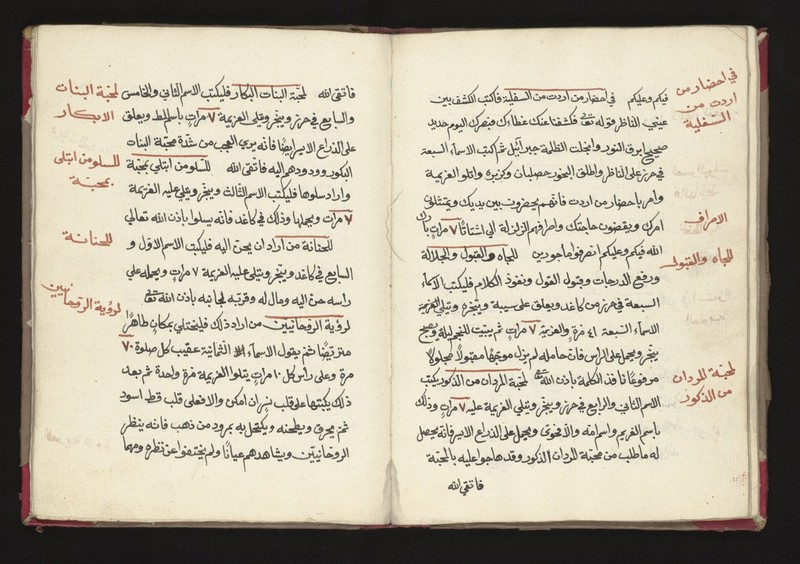 في احضار من
اردت من
السفلية
فيكم وعليكم في احضار من اردت من السفلية فاكتب الكشف بين
عيني الناظر قوله تعالى فكشفنا عنك غطاءك فبصرك اليوم حديد
صحيح ابرق النور وانجلت الظلمة جبرائيل ثم كتب الاسماء السبعة
في حرز على الناظر واطلق البخور حصلبان وكزبره واتلو العزيمة
وامر باحضار من اردت فانهم يحضرون بين يديك ويمتثلوا
امرك ويقضون حاجتك واصرافهم الزلزلة الى اشتاتا ٧ مرات بارك
الاصراف
الله فيكم وعليكم انصرفوا ماجورين للجاه والقبول والجلالة
للجاه والقبول
ورفع الدرجات وقبول القول ونفوذ الكلام فليكتب الاسماء
السبعة في حرز من كاغد ويعلق على سيبة ويبخره ويتلي العزيمة
الاسماء السبعة ٤١ مرة والعزيمة ٧ مرات ثم يبيت للنجم ليلة ويصبح
يبخر ويحملها على الراس فان حامله لم يزل موجها مقبولا مجلولا
مرفوعا نافذ الكلمة باذن الله تعالى لمحبة المردان من الذكور يكتب
لمحبة المردان
من الذكور
الاسم الثاني والرابع في حرز ويبخر ويتلي العزيمة عليه ٧ مرات وذلك
باسم الغريم واسم امه ويحمل على الذراع الايسر فانه يحصل
له ما طلب من محبة المردان الذكور وقد هاجوا عليه بالمحبة
فاتقي الله
فاتقي الله لمحبة البنات البكار فليكتب الاسم الثاني والخامس
لمحبة البنات
الابكار
والسابع في حرز ويبخر وتلي العزيمة ٧ مرات باسم الخط ويعلق
على الذراع الايسر ايضا فانه يرى العجب من شدة محبة البنات
البكور وودودهم اليه فاتقي الله للسلو من ابتلى بمحبة
للسلو من ابتلى
بمحبة
واراد سلوها فليكتب الاسم الثالث ويبخر ويتلي عليه العزيمة
٧ مرات ويحملها وذلك في كاغد فانه يسلوا باذن الله تعالى
للحنانة من اراد ان يحن اليه فليكتب الاسم الاول و
للحنانة
السابع في كاغد ويبخر ويتلي عليه العزيمة ٧ مرات ويحمله على
راسه حن اليه ومال له وقربه لجانبه باذن الله تعالى
لرؤية الروحانيين من اراد ذلك فليختلي بمكان طاهرا
لرؤية الروحانيين
متريضا ثم يقول الاسماء الثمانية عقيب كل صلوة ٧٠
مرة وعلى راس كل ١٠ مرات يتلوا العزيمة مرة واحدة ثم بعد
ذلك يكتبها على قلب نسران امكن والا فعلى قلب قط اسود
ثم يحرق ويطحنه ويكتحل به بمرود من ذهب فانه ينظر
الروحانيين ويشاهدهم عيانا ولم يختفوا عن نظره ومهما